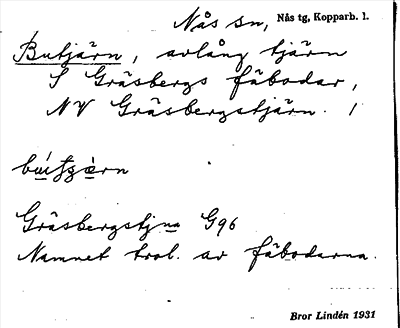 Nås sn, Nås tg, Kopparb. l.
Butjärn, avlång tjärn
S Gräsbergs fäbodar,
NV Gräsbergstjärn. 1
Gräsbergstjna G96
Namnet trol. av fäbodarna.
Bror Lindén 1931